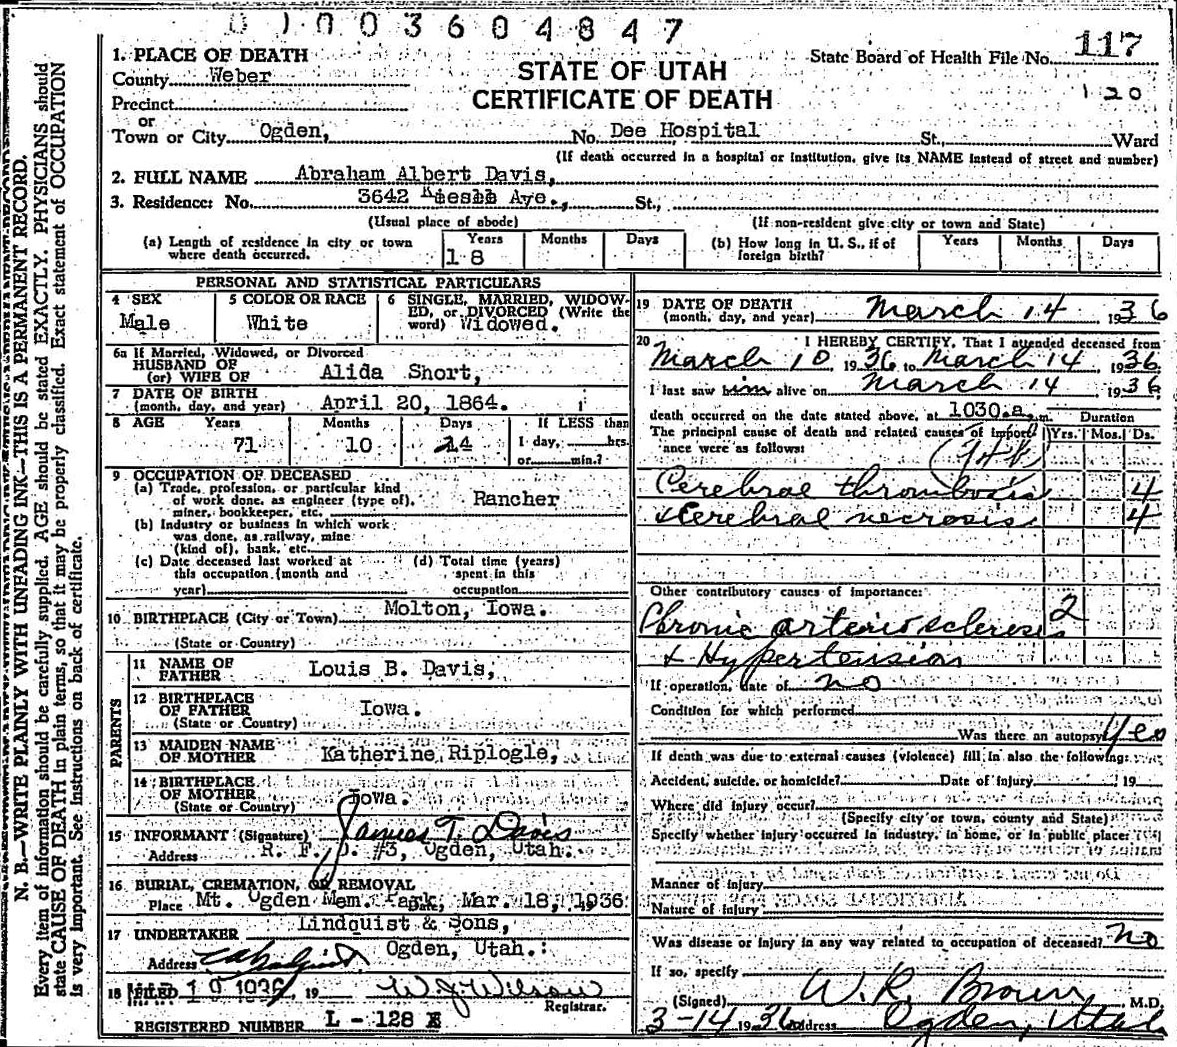 0 1 0 0 3 6 0 4 8 4 7
N. B.—WRITE PLAINLY WITH UNFADING INK—THIS IS A PERMANENT RECORD.
Every item of information should be carefully supplied. AGE should be stated EXACTLY. PHYSICIANS should
state CAUSE OF DEATH in plain terms, so that it may be properly classified. Exact statement of OCCUPATION
is very important. See instructions on back of certificate.
STATE OF UTAH
CERTIFICATE OF DEATH
State Board of Health File No. 117
120
1. PLACE OF DEATH
County Weber
Precinct
or
Town or City Ogden, No. Dee Hospital St., Ward
(If death occurred in a hospital or institution, give its NAME instead of street and number)
2. FULL NAME Abraham Albert Davis,
3. Residence: No. 3642 Kiesel Ave., St.,
(Usual place of abode) (If non-resident give city or town and State)
(a) Length of residence in city or town where death occurred. Years 18 Months Days
(b) How long in U. S., if of foreign birth? Years Months Days
PERSONAL AND STATISTICAL PARTICULARS
4 SEX Male
5 COLOR OR RACE White
6 SINGLE, MARRIED, WIDOWED, or DIVORCED (Write the word) Widowed.
6a If Married, Widowed, or Divorced
HUSBAND OF
(or) WIFE OF Alida Short,
7 DATE OF BIRTH
(month, day, and year) April 20, 1864.
8 AGE Years 71 Months 10 Days 24 If LESS than
1 day, hrs.
or min.?
9 OCCUPATION OF DECEASED
(a) Trade, profession, or particular kind
of work done, as engineer (type of), Rancher
miner, bookkeeper, etc.
(b) Industry or business in which work
was done, as railway, mine
(kind of), bank, etc.
(c) Date deceased last worked at
this occupation (month and
year)
(d) Total time (years)
spent in this
occupation
10 BIRTHPLACE (City or Town) Molton, Iowa.
(State or Country)
PARENTS
11 NAME OF
FATHER Louis B. Davis,
12 BIRTHPLACE
OF FATHER Iowa.
(State or Country)
13 MAIDEN NAME
OF MOTHER Katherine Riplogle,
14 BIRTHPLACE
OF MOTHER Iowa.
(State or Country)
15 INFORMANT (Signature) James T. Davis
Address R. F. D. #3, Ogden, Utah.
16 BURIAL, CREMATION, OR REMOVAL
Place Mt. Ogden Mem. Park, Mar. 18, 1936
17 UNDERTAKER Lindquist & Sons,
Address Ogden, Utah.
18 FILED 19 1936, 19 W J Wilson
Registrar.
REGISTERED NUMBER L - 128
19 DATE OF DEATH
(month, day, and year) March 14 1936
20 I HEREBY CERTIFY, That I attended deceased from
March 10, 1936 to March 14, 1936
I last saw him alive on March 14, 1936
death occurred on the date stated above, at 1030 a. m. Duration
The principal cause of death and related causes of importance were as follows: Yrs. Mos. Ds.
Cerebral thrombosis 4
& Cerebral necrosis 4
Other contributory causes of importance:
Chronic arterio sclerosis 2
& Hypertension
If operation, date of no
Condition for which performed
Was there an autopsy Yes
If death was due to external causes (violence) fill in also the following:
Accident, suicide, or homicide? Date of injury 19
Where did injury occur?
(Specify city or town, county and State)
Specify whether injury occurred in industry, in home, or in public place:
Manner of injury
Nature of injury
Was disease or injury in any way related to occupation of deceased? no
If so, specify
(Signed) W. R. Brown, M.D.
3-14 1936 Address Ogden, Utah